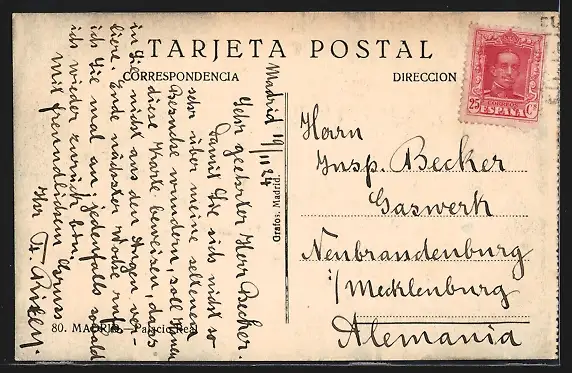 TARJETA POSTAL
CORRESPONDENCIA
DIRECCION
25 Cs
ESPAÑA
Madrid 19/11 24
Sehr geehrter Herr Becker.
Damit Sie sich nicht so
sehr über meine seltenen
Besuche wundern, soll Ihnen
diese Karte beweisen, dass
ich Sie nicht aus den Augen ver-
liere. Ende nächster Woche rufe
ich Sie mal an, jedenfalls sobald
ich wieder zurück bin.
Mit freundlichem Gruss
Ihr
Herrn
Insp. Becker
Gaswerk
Neubrandenburg
i/Mecklenburg
Alemania
Grafos. Madrid.
80. MADRID.—Palacio Real